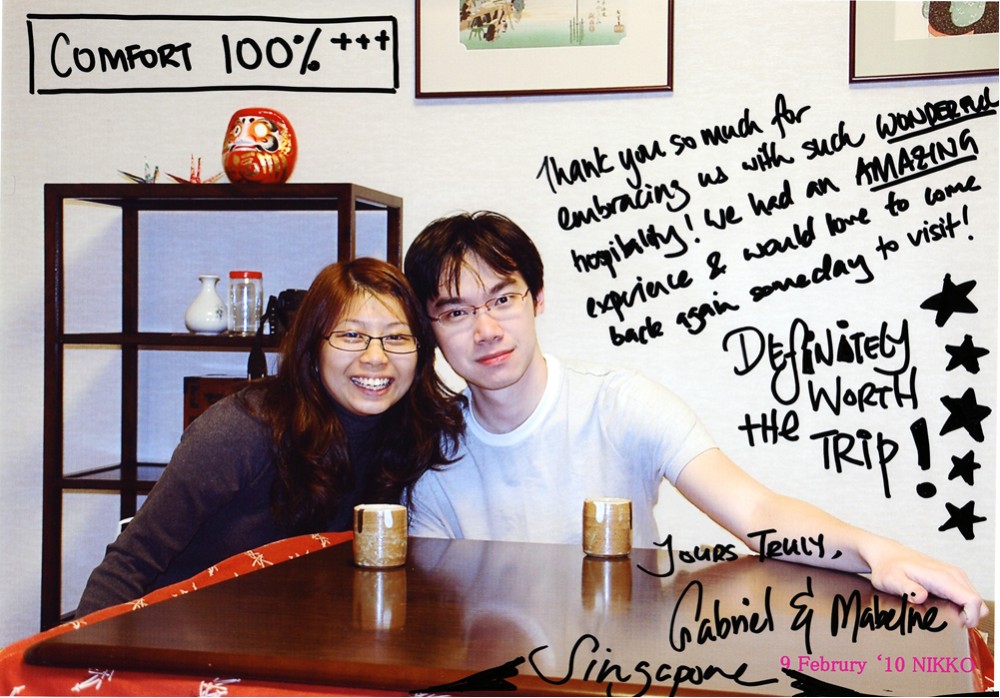 COMFORT 100% +++
Thank you so much for
embracing us with such WONDERFUL
hospitality! We had an AMAZING
experience & would love to come
back again someday to visit!
DEfiNiTELY
WORTH
THE
TRIP!
YOURS TRULY,
Gabriel & Mabeline
Singapore
9 Februry '10 NIKKO